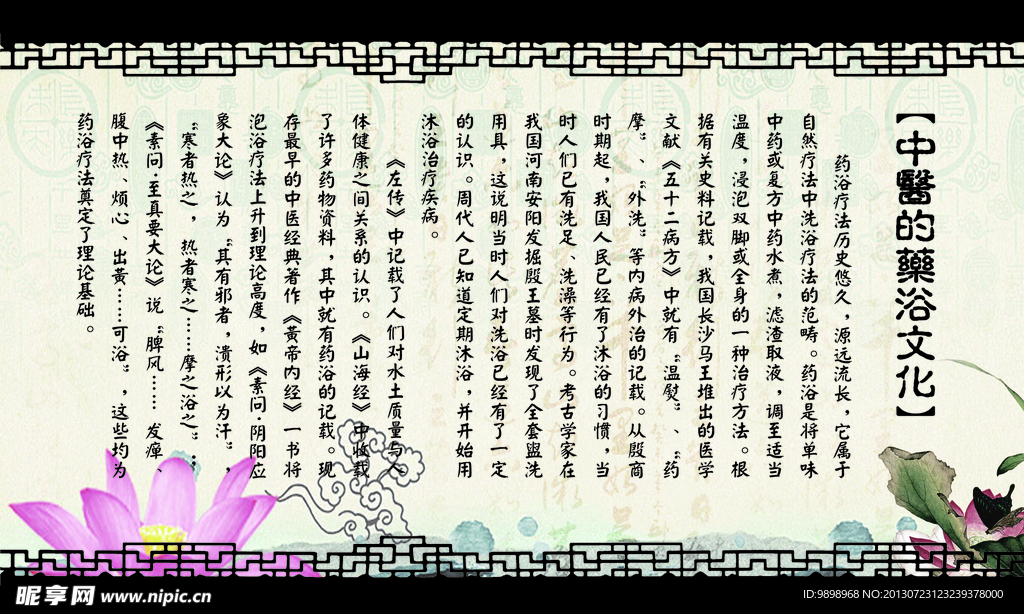 【中醫的藥浴文化】
药浴疗法历史悠久，源远流长，它属于
自然疗法中洗浴疗法的范畴。药浴是将单味
中药或复方中药水煮，滤渣取液，调至适当
温度，浸泡双脚或全身的一种治疗方法。根
据有关史料记载，我国长沙马王堆出的医学
文献《五十二病方》中就有“温熨”、“药
摩”、“外洗”等内病外治的记载。从殷商
时期起，我国人民已经有了沐浴的习惯，当
时人们已有洗足、洗澡等行为。考古学家在
我国河南安阳发掘殷王墓时发现了全套盥洗
用具，这说明当时人们对洗浴已经有了一定
的认识。周代人已知道定期沐浴，并开始用
沐浴治疗疾病。
《左传》中记载了人们对水土质量与人
体健康之间关系的认识。《山海经》中收载
了许多药物资料，其中就有药浴的记载。现
存最早的中医经典著作《黄帝内经》一书将
泡浴疗法上升到理论高度，如《素问·阴阳应
象大论》认为“其有邪者，渍形以为汗”，
“寒者热之，热者寒之……摩之浴之”；
《素问·至真要大论》说“脾风……发瘅、
腹中热、烦心、出黄……可浴”，这些均为
药浴疗法奠定了理论基础。
昵享网 www.nipic.cn
ID:9898968 NO:20130723123239378000